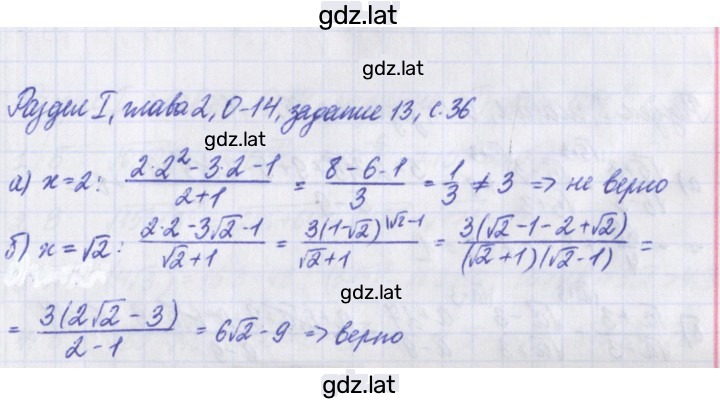 gdz.lat
gdz.lat
Раздел I, глава 2, О-14, задание 13, с. 36
gdz.lat
а) x=2: (2·2²-3·2-1)/(2+1) = (8-6-1)/3 = 1/3 ≠ 3 => не верно
б) x=√2: (2·2-3√2-1)/(√2+1) = (3(1-√2)^(√2-1))/(√2+1) = (3(√2-1-2+√2))/((√2+1)(√2-1)) =
gdz.lat
= (3(2√2-3))/(2-1) = 6√2-9 => верно
gdz.lat